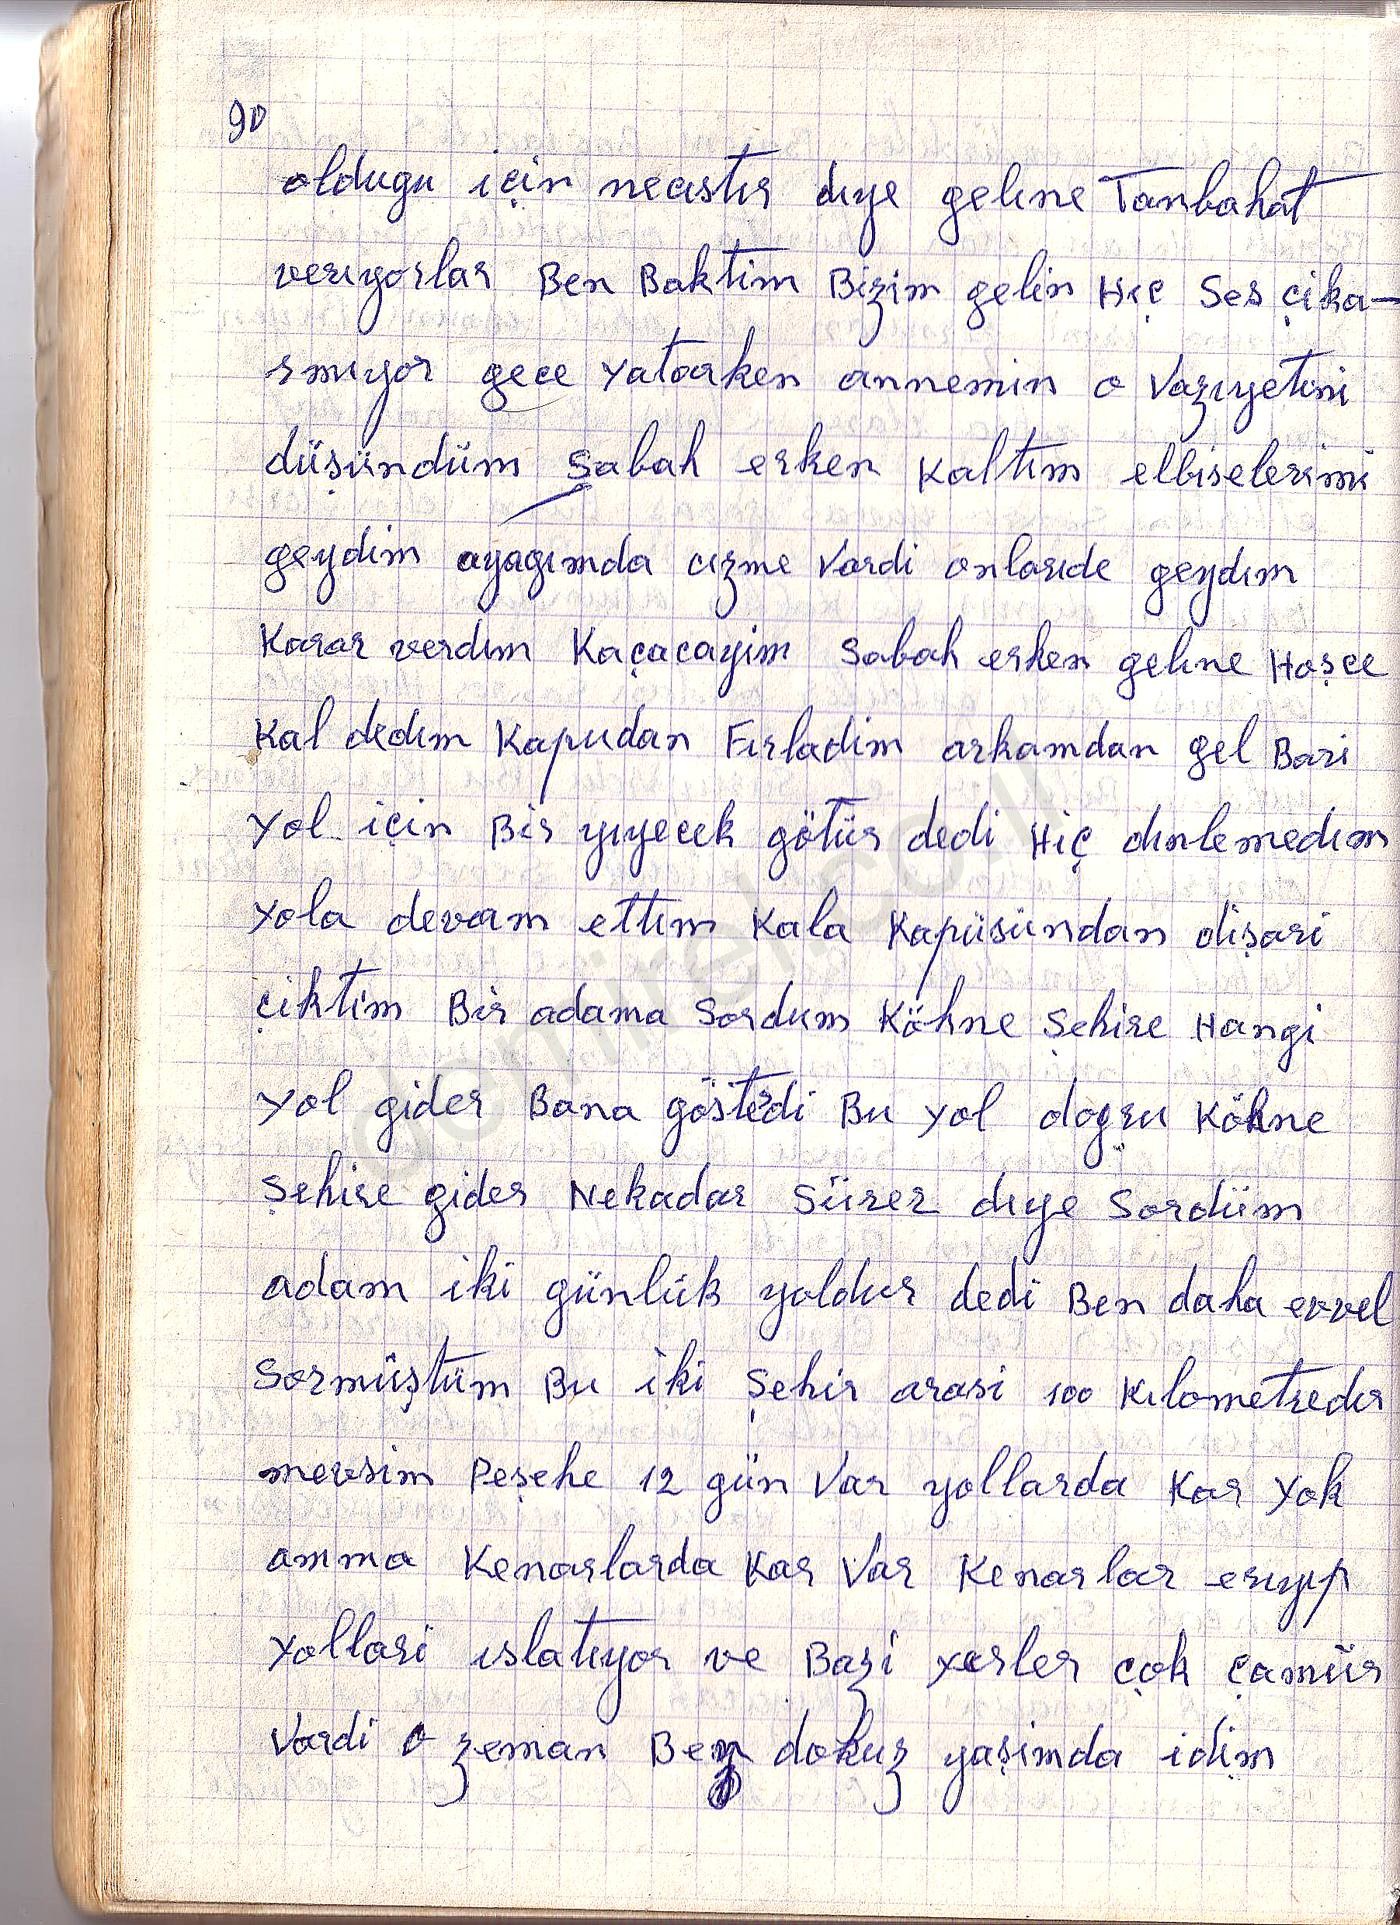 90
oldugu için necistir dıye gelıne Tanbahat
verıyorlar Ben Baktim Bizim gelin Hıç Ses çika-
rmıyor gece yatarken annemin o Vazıyetıni
düşündüm Sabah erken Kaltım elbiselerimi
geydim ayagımda cızme Vardi onlarıde geydım
Karar verdım Kaçacayim Sabah erken gelıne Hoşce
Kal dedım Kapudan Fırladim arkamdan gel Bari
yol için Bir yıyecek götür dedi Hiç dınlemedım
yola devam ettım Kala Kapüsündan dişari
çiktim Bir adama Sordum Köhne Şehire Hangi
yol gider Bana gösterdi Bu yol dogru Köhne
Şehire gider Nekadar Sürer dıye Sordüm
adam iki günlük yoldur dedi Ben daha evvel
Sormüştüm Bu iki Şehir arasi 100 Kılometredır
mevsim Peşehe 12 gün Var yollarda Kar yok
amma Kenarlarda Kar Var Kenarlar erıyıp
yollari ıslatıyor ve Bazi yerler çok çamür
Vardi o zeman Ben dokuz yaşimda idim
demirel.co.il